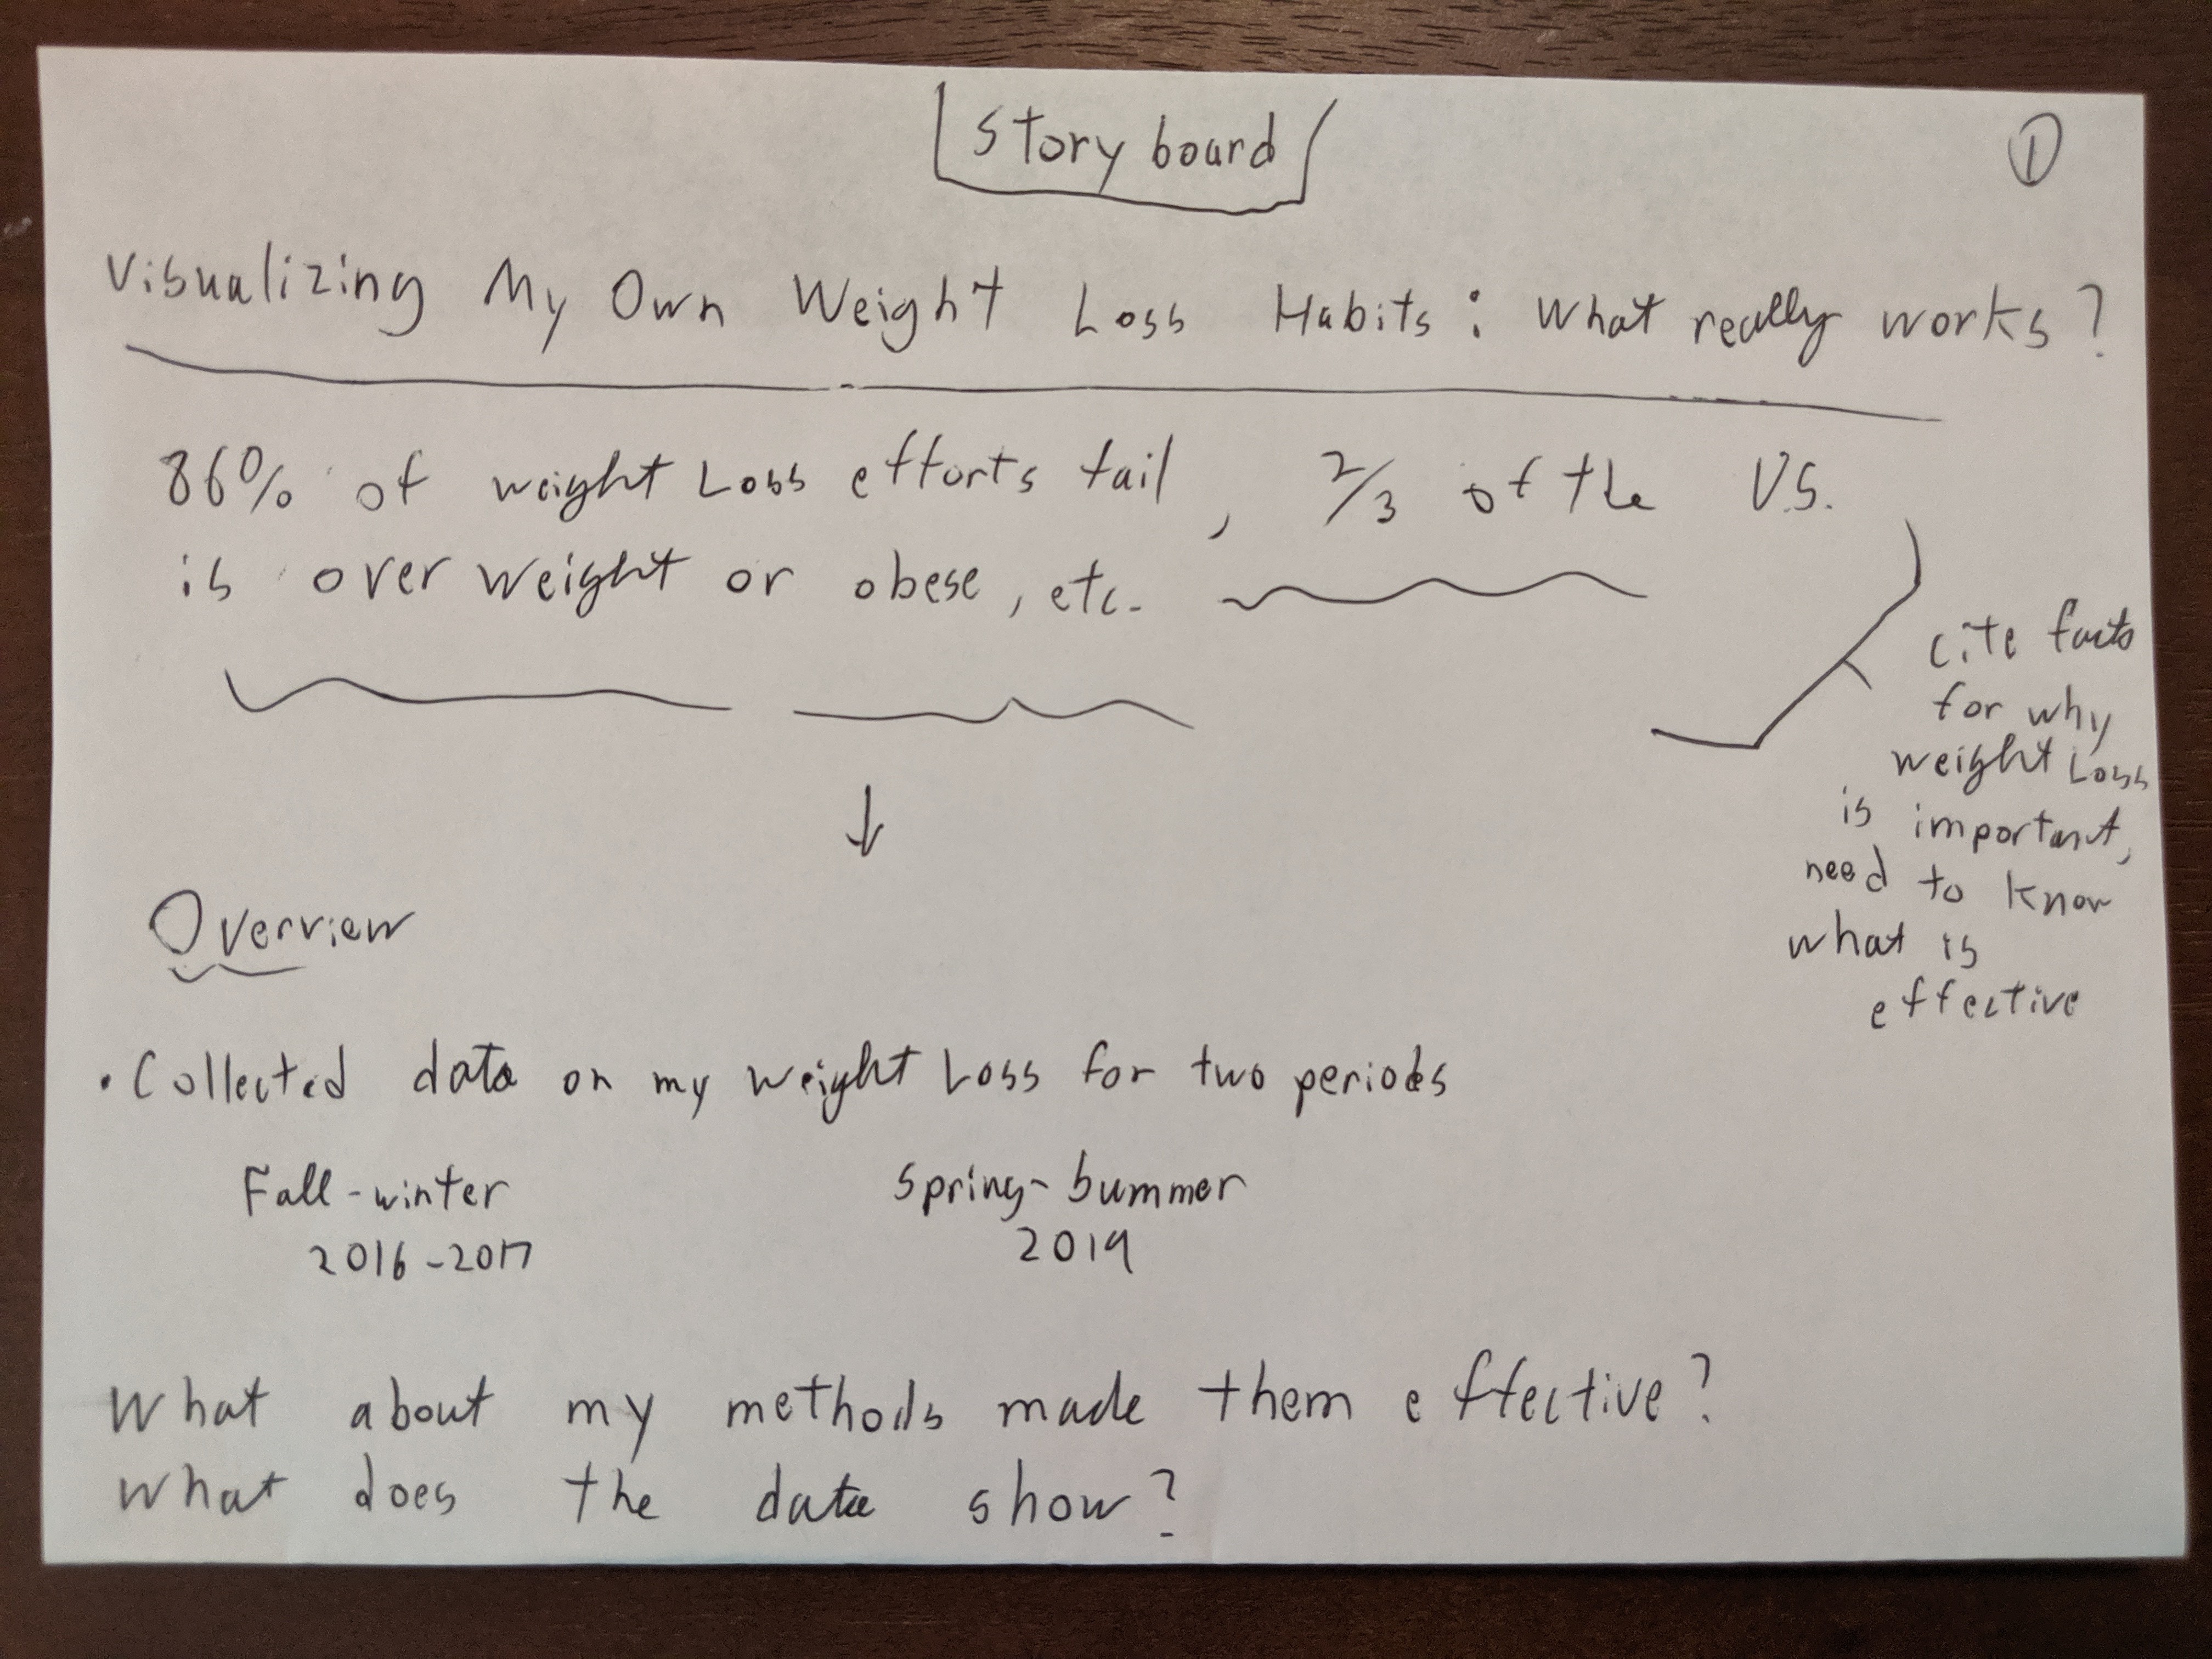 Story board
1
Visualizing My Own Weight Loss Habits: What really works?
86% of weight Loss efforts fail, 2/3 of the U.S.
is over weight or obese, etc.
cite facts
for why
weight Loss
is important,
need to know
what is
effective
Overview
• Collected data on my weight Loss for two periods
Fall-winter
2016-2017
Spring-Summer
2019
What about my methods made them effective?
What does the data show?